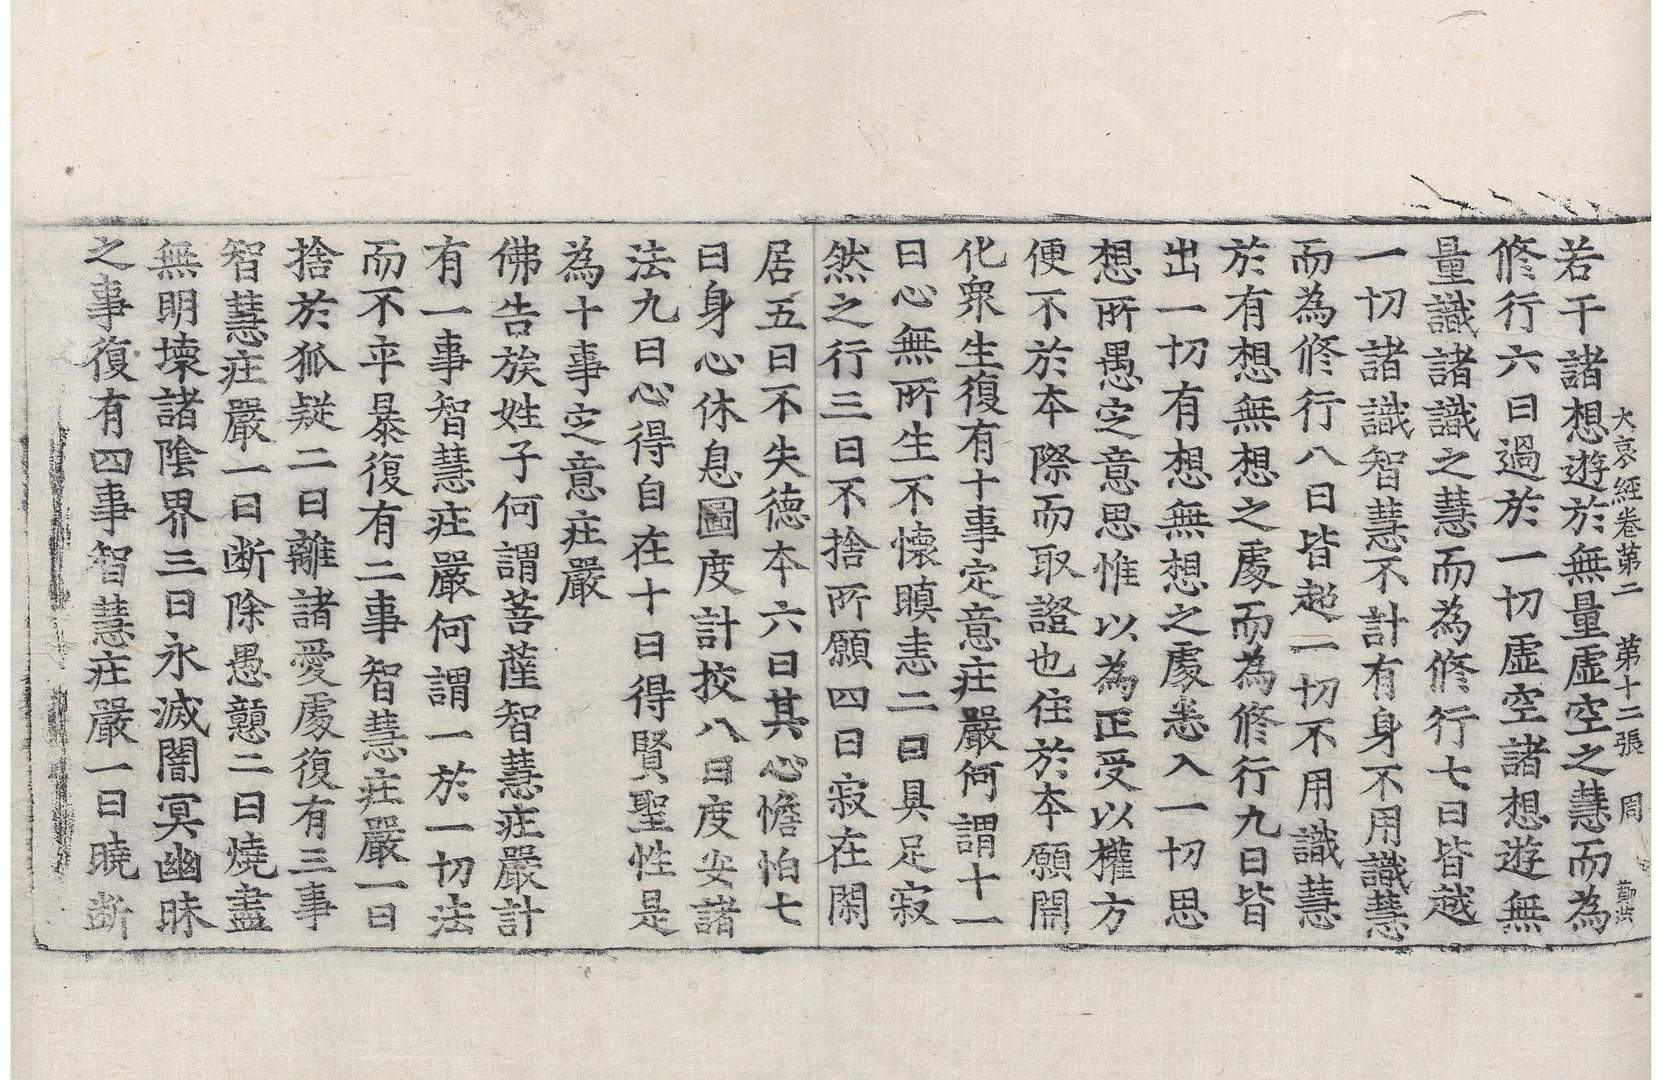 大哀經卷第二　第十二張　周　鄭洪
若干諸想遊於無量虛空之慧而為
修行六曰過於一切虛空諸想遊無
量識諸識之慧而為修行七曰皆越
一切諸識智慧不計有身不用識慧
而為修行八曰皆超一切不用識慧
於有想無想之處而為修行九曰皆
出一切有想無想之處悉入一切思
想所愚定意思惟以為正受以權方
便不於本際而取證也住於本願開
化眾生復有十事定意庄嚴何謂十一
曰心無所生不懷瞋恚二曰具足寂
然之行三曰不捨所願四曰寂在閑
居五曰不失德本六曰其心憺怕七
曰身心休息圖度計挍八曰度安諸
法九曰心得自在十曰得賢聖性是
為十事定意庄嚴
佛告族姓子何謂菩薩智慧庄嚴計
有一事智慧庄嚴何謂一於一切法
而不卒暴復有二事智慧庄嚴一曰
捨於狐疑二曰離諸愛處復有三事
智慧庄嚴一曰断除愚戇二曰燒盡
無明壞諸陰界三曰永滅闇冥幽昧
之事復有四事智慧庄嚴一曰曉断